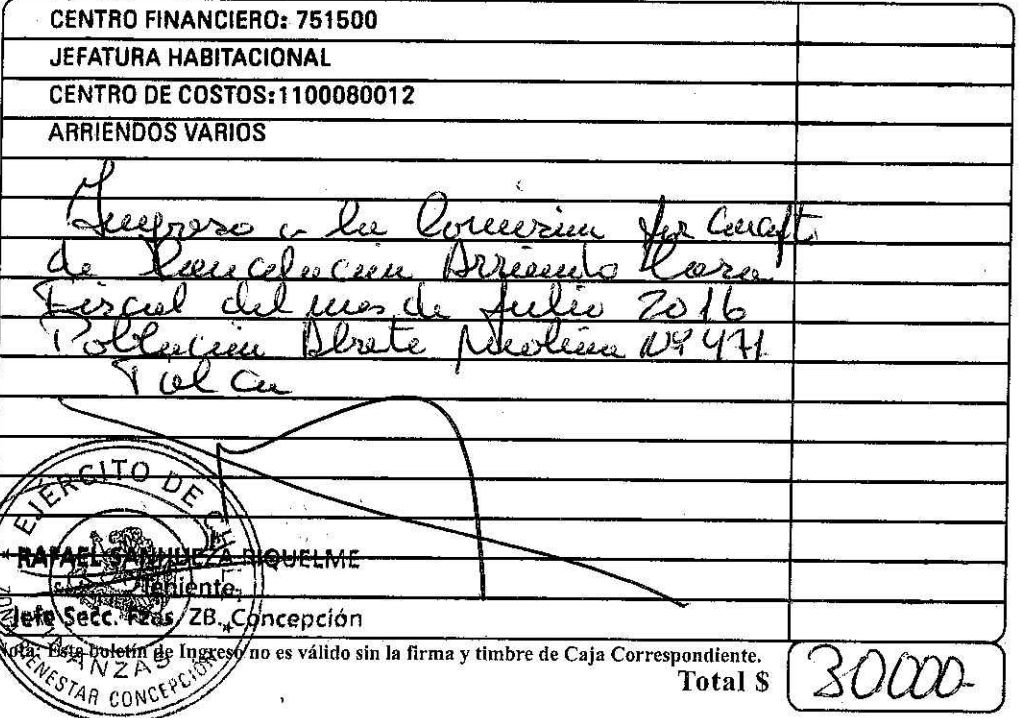 CENTRO FINANCIERO: 751500
JEFATURA HABITACIONAL
CENTRO DE COSTOS:1100080012
ARRIENDOS VARIOS
Ingreso a la Comisión por Concepto
de Cancelación Arriendo Casa
Fiscal del mes de Julio 2016
Población Abate Molina Nº 471
Talca
EJÉRCITO DE CHILE
RAFAEL SANHUEZA RIQUELME
Teniente
Jefe Secc. Fzas. ZB. Concepción
FINANZAS
BIENESTAR CONCEPCIÓN
Nota: Este boletín de Ingreso no es válido sin la firma y timbre de Caja Correspondiente.
Total $ 30000-